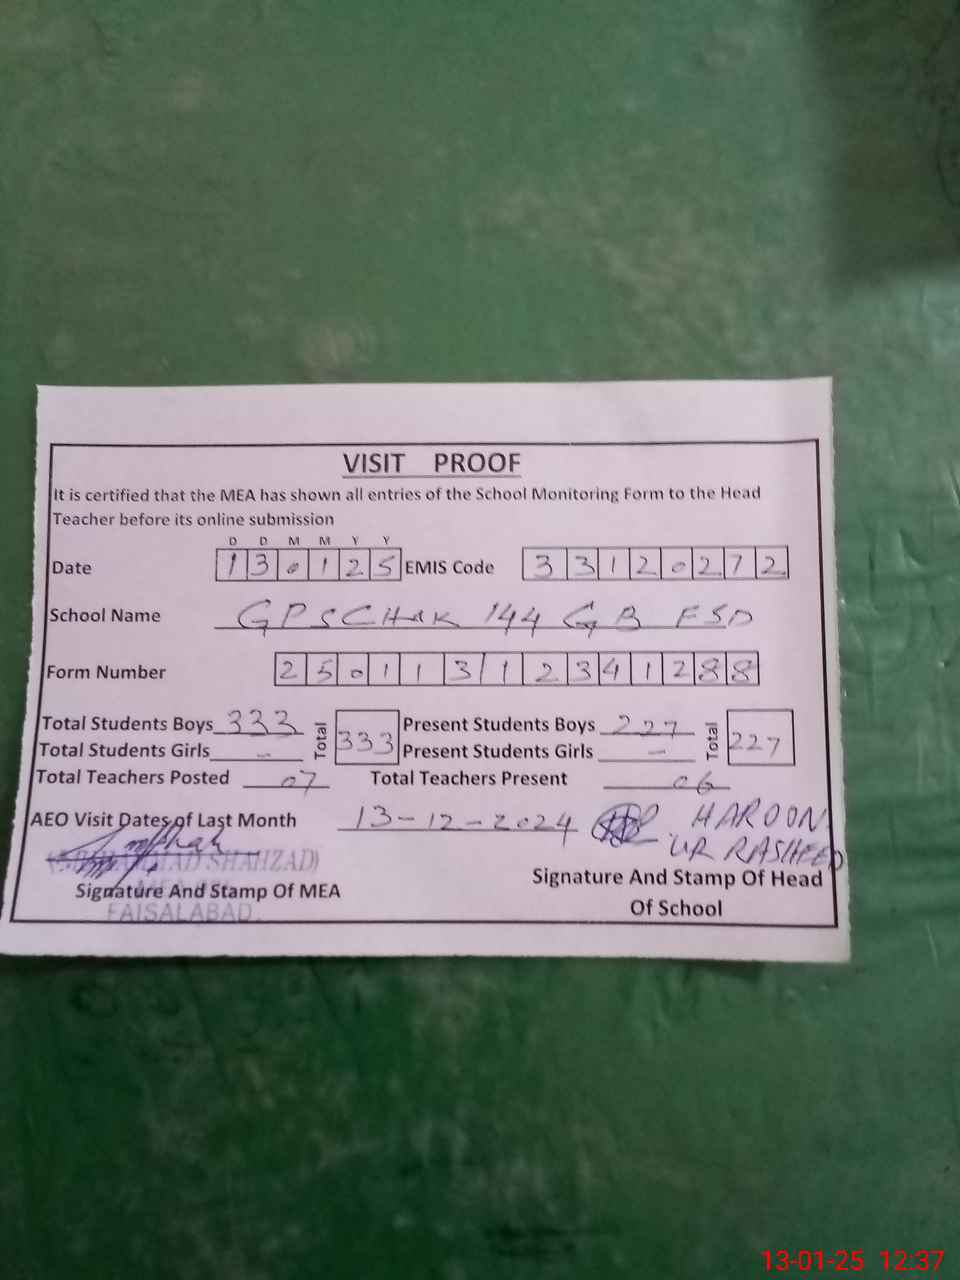 VISIT PROOF
It is certified that the MEA has shown all entries of the School Monitoring Form to the Head
Teacher before its online submission
D D M M Y Y
Date 130125 EMIS Code 33120272
School Name GPSCHAK 144 GB FSD
Form Number 25011312341288
Total Students Boys 333 Total 333 Present Students Boys 227 Total 227
Total Students Girls - Present Students Girls -
Total Teachers Posted 07 Total Teachers Present 06
AEO Visit Dates of Last Month 13-12-2024 HAROON
UR RASHEED
SHAHZAD)
Signature And Stamp Of MEA Signature And Stamp Of Head
Of School
FAISALABAD.
13-01-25 12:37